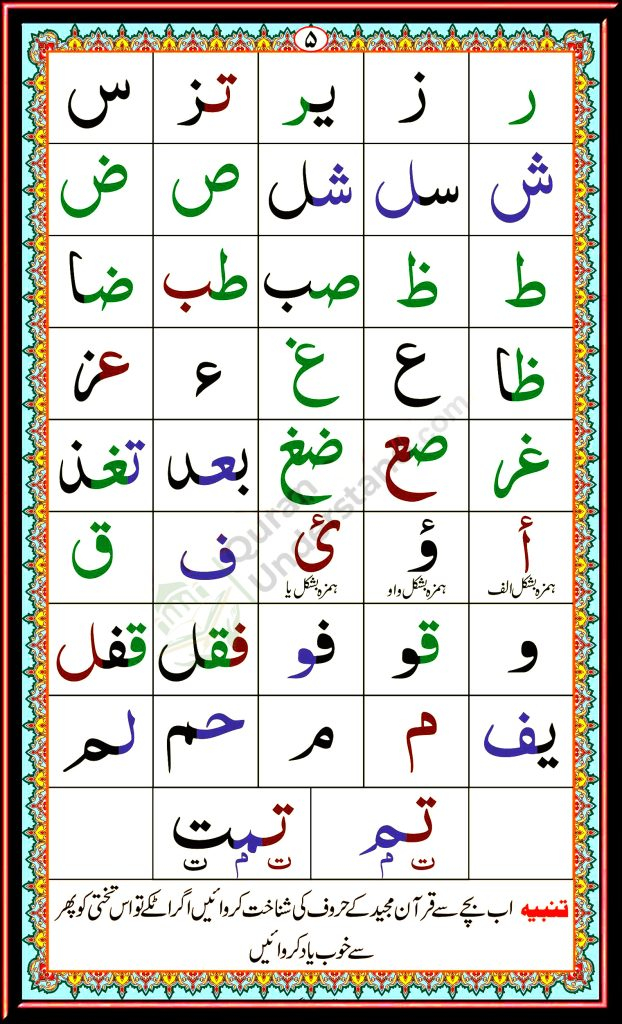 ۵
ر ز یر تز س
ش سل شل ص ض
ط ظ صب طب ضا
ظا ع غ ء عز
غر صع ضغ بعد تغذ
أ ؤ ئ ف ق
ہمزہ بشکل الف ہمزہ بشکل واو ہمزہ بشکل یا
و قو فو فقل قفل
یف م م حم لم
تم تمت
ت م ت م ت
تنبیہ اب بچے سے قرآن مجید کے حروف کی شناخت کروائیں اگر اٹکے تو اس تختی کو پھر
سے خوب یاد کروائیں
Quran
Understand.com